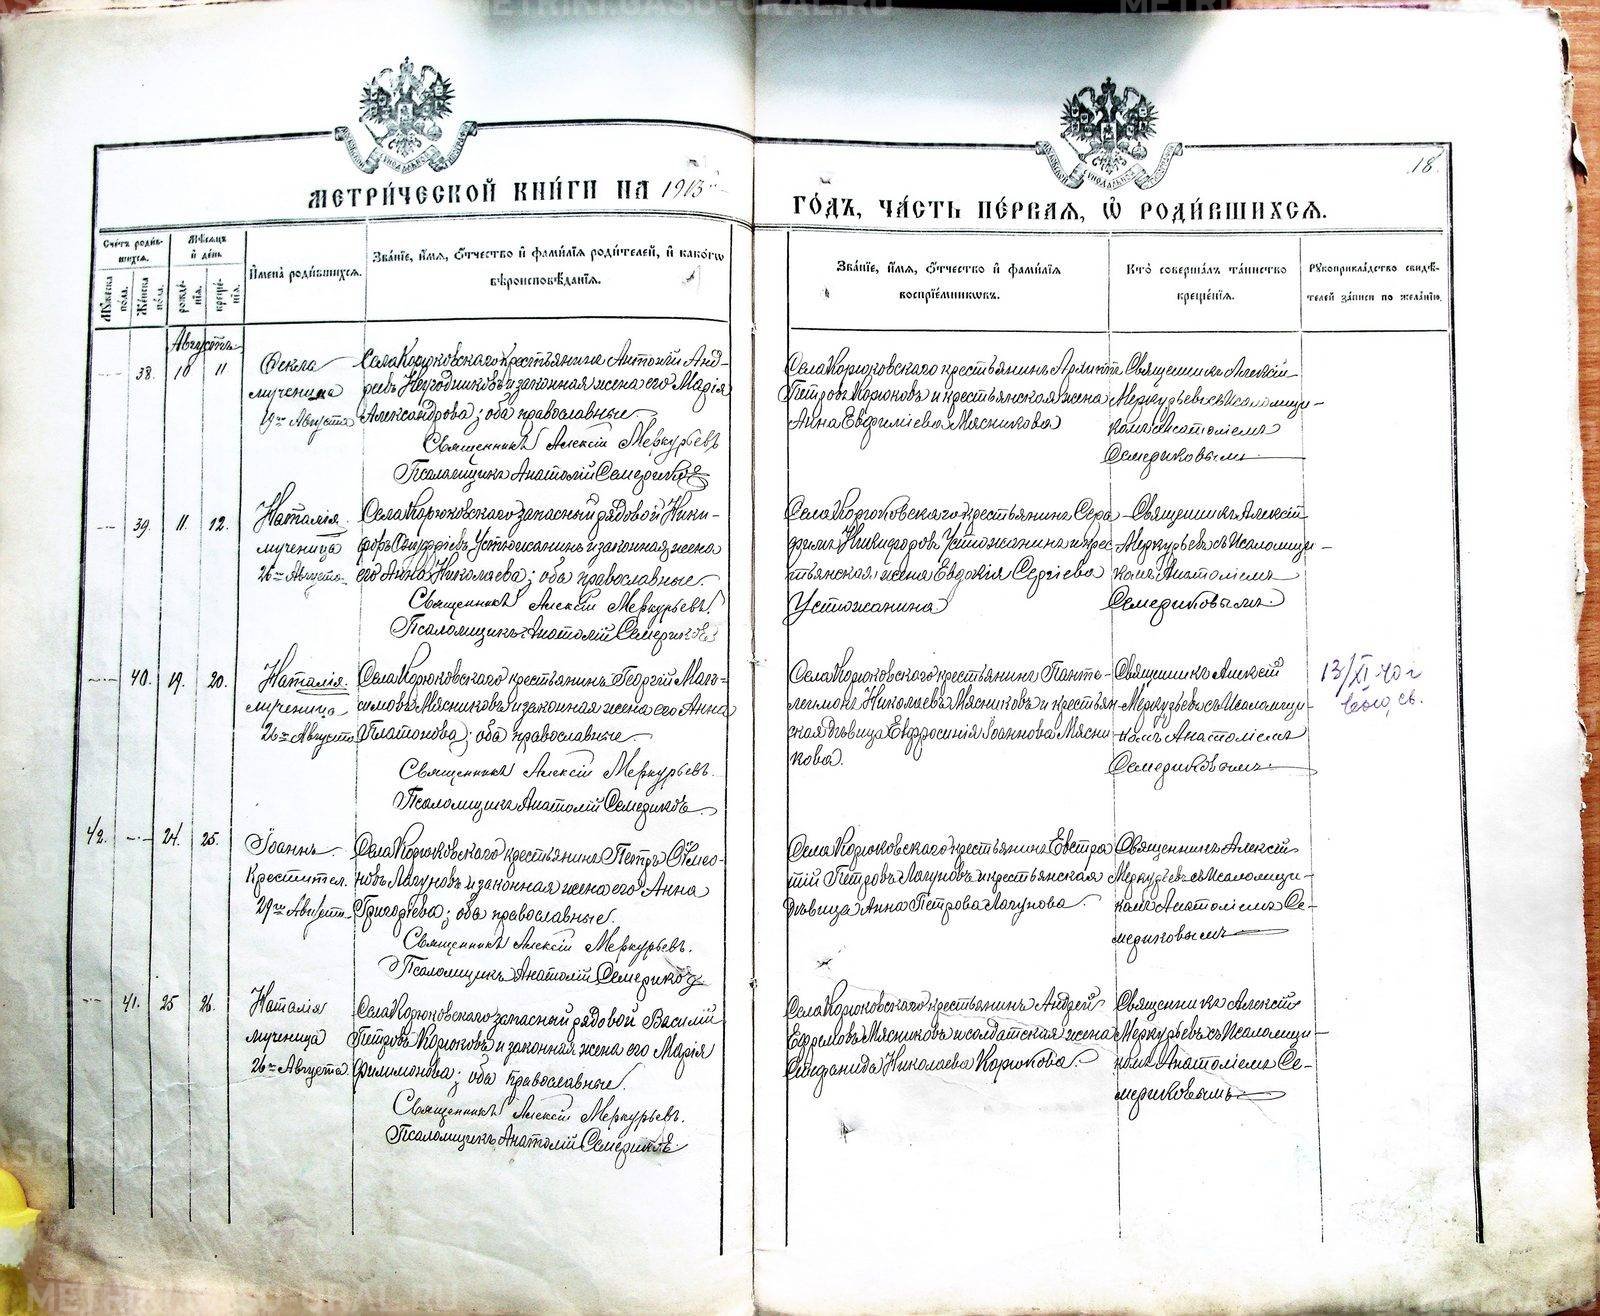 METRIKI.GASO-URAL.RU
METRIKI.GASO-URAL.RU
18
МЕТРИ́ЧЕСКОЙ КНИ́ГИ НА 1913
ГО́ДЪ, ЧА́СТЬ ПЕ́РВАЯ, Ѡ҆ РОДИ́ВШИХСЯ.
Сче́тъ роди́вшихся.
Мѣ́сяцъ и҆ де́нь
И҆мена̀ роди́вшихся.
Зва́нїе, и҆́мя, ѻ҆́тчество и҆ фами́лїя роди́телей, и҆ како́гѡ
вѣроисповѣ́данїя.
Зва́нїе, и҆́мя, ѻ҆́тчество и҆ фами́лїя
воспрїе́мникѡвъ.
Кто̀ соверша́лъ та́инство
креще́нїя.
Рꙋкоприкла́дство свидѣ́-
телей за́писи по жела́нїю.
Мꙋ́жеска по́ла.
Же́нска по́ла.
рожде́нїя.
креще́нїя.
Августъ
38. 10 11
Ѳекла
мученица
19го Августа
Села Корюковскаго крестьянинъ Антоній Анд-
реевъ Негодниковъ и законная жена его Марія
Александрова; оба православные
Священникъ Алексій Меркурьевъ
Псаломщикъ Анатолій Семериковъ
Села Корюковскаго крестьянинъ
Петровъ Корюковъ и крестьянская жена
Анна Евфиміева Мясникова
Священникъ Алексій
Меркурьевъ съ псаломщи-
комъ Анатоліемъ
Семериковымъ
39. 11. 12.
Наталія
мученица
26го Августа
Села Корюковскаго запасный рядовой Ники-
форъ Устюжанинъ и законная жена
его Анна Николаева; оба православные.
Священникъ Алексій Меркурьевъ
Псаломщикъ Анатолій Семериковъ
Села Корюковскаго крестьянинъ Сера-
фимъ Никифоровъ Устюжанинъ и крес-
тьянская жена Евдокія Сергіева
Устюжанина
Священникъ Алексій
Меркурьевъ съ псаломщи-
комъ Анатоліемъ
Семериковымъ.
40. 19. 20.
Наталія.
мученица
26го Августа
Села Корюковскаго крестьянинъ Георгій Мак-
симовъ Мясниковъ и законная жена его Анна
Платонова; оба православные.
Священникъ Алексій Меркурьевъ.
Псаломщикъ Анатолій Семериковъ
Села Корюковскаго крестьянинъ Панте-
леимонъ Николаевъ Мясниковъ и крестьян-
ская дѣвица Евфросинія Іоаннова Мясни-
кова.
Священникъ Алексій
Меркурьевъ съ псаломщи-
комъ Анатоліемъ
Семериковымъ.
13/XI-40 г
42. 24. 25.
Іоаннъ.
Креститель.
29го Августа
Села Корюковскаго крестьянинъ Петръ Симео-
новъ Лагуновъ и законная жена его Анна
Григоріева; оба православные.
Священникъ Алексій Меркурьевъ.
Псаломщикъ Анатолій Семериковъ
Села Корюковскаго крестьянинъ Евстра-
тій Петровъ Лагуновъ и крестьянская
дѣвица Анна Петрова Лагунова.
Священникъ Алексій
Меркурьевъ съ псаломщи-
комъ Анатоліемъ Се-
мериковымъ
41. 25 26.
Наталія
мученица
26го Августа
Села Корюковскаго запасный рядовой Василій
Петровъ Корюковъ и законная жена его Марія
Филимонова; оба православные.
Священникъ Алексій Меркурьевъ.
Псаломщикъ Анатолій Семериковъ.
Села Корюковскаго крестьянинъ Андрей
Ефремовъ Мясниковъ и солдатская жена
Стефанида Николаева Корюкова.
Священникъ Алексій
Меркурьевъ съ псаломщи-
комъ Анатоліемъ Се-
мериковымъ
METRIKI.GASO-URAL.RU
METRIKI.GASO-URAL.RU